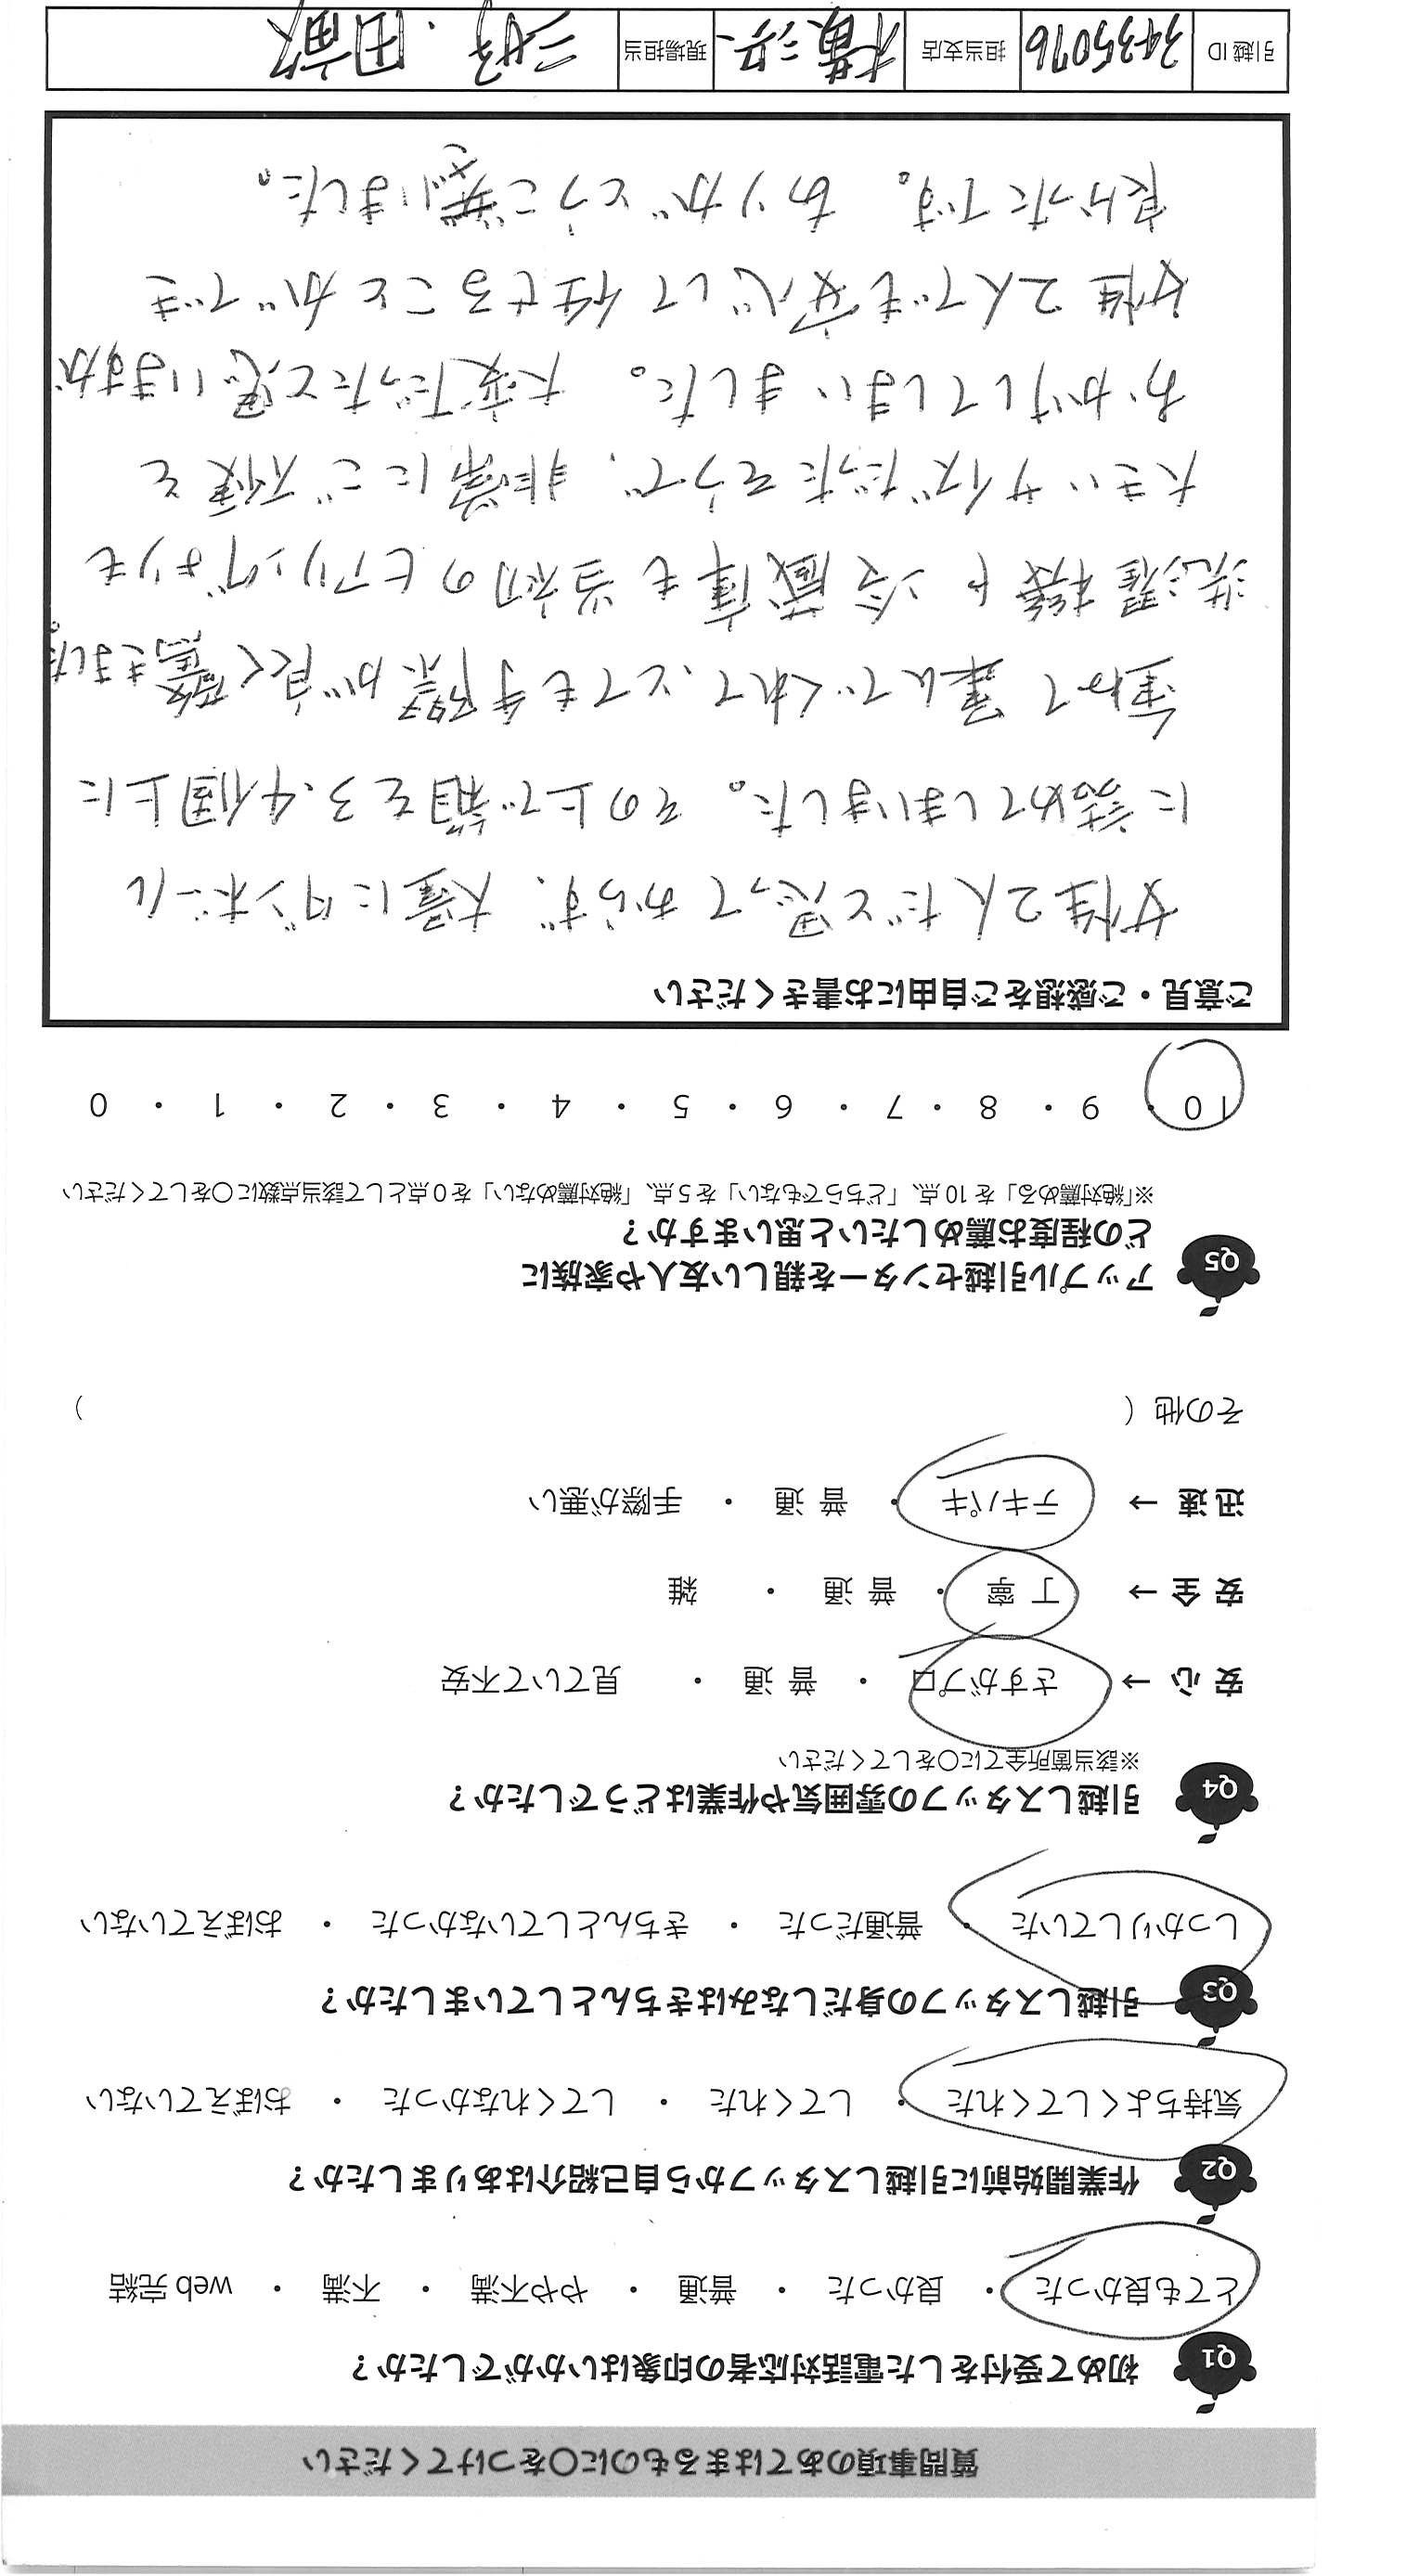 質問事項のあてはまるものに○をつけてください
Q1 初めて受付をした電話対応者の印象はいかがでしたか？
とても良かった ・ 良かった ・ 普通 ・ やや不満 ・ 不満 ・ web 完結
Q2 作業開始前に引越しスタッフから自己紹介はありましたか？
気持ちよくしてくれた ・ してくれた ・ してくれなかった ・ おぼえていない
Q3 引越しスタッフの身だしなみはきちんとしていましたか？
しっかりしていた ・ 普通だった ・ きちんとしていなかった ・ おぼえていない
Q4 引越しスタッフの雰囲気や作業はどうでしたか？
※該当箇所全てに○をしてください
安 心 → さすがプロ ・ 普 通 ・ 見ていて不安
安 全 → 丁 寧 ・ 普 通 ・ 雑
迅 速 → テキパキ ・ 普 通 ・ 手際が悪い
その他（ ）
Q5 アップル引越センターを親しい友人や家族に
どの程度お薦めしたいと思いますか？
※「絶対薦める」を 10 点、「どちらでもない」を 5 点、「絶対薦めない」を 0 点として該当点数に○をしてください
10 ・ 9 ・ 8 ・ 7 ・ 6 ・ 5 ・ 4 ・ 3 ・ 2 ・ 1 ・ 0
ご意見・ご感想をご自由にお書きください
女性2人だと思ってからず、大量にダンボール
に詰めてしまいました。その上で箱を3、4個上に
重ねて運んでくれて、とても手際が良く驚きました。
洗濯機や冷蔵庫も当初のヒアリングよりも
大きいサイズだったそうで、非常にご不便を
おかけしてしまいました。大変だったと思いますが
女性2人でも安心して任せることができ
良かったです。ありがとうございました。
引越 ID 3435076 担当支店 横浜 現場担当 三好・田